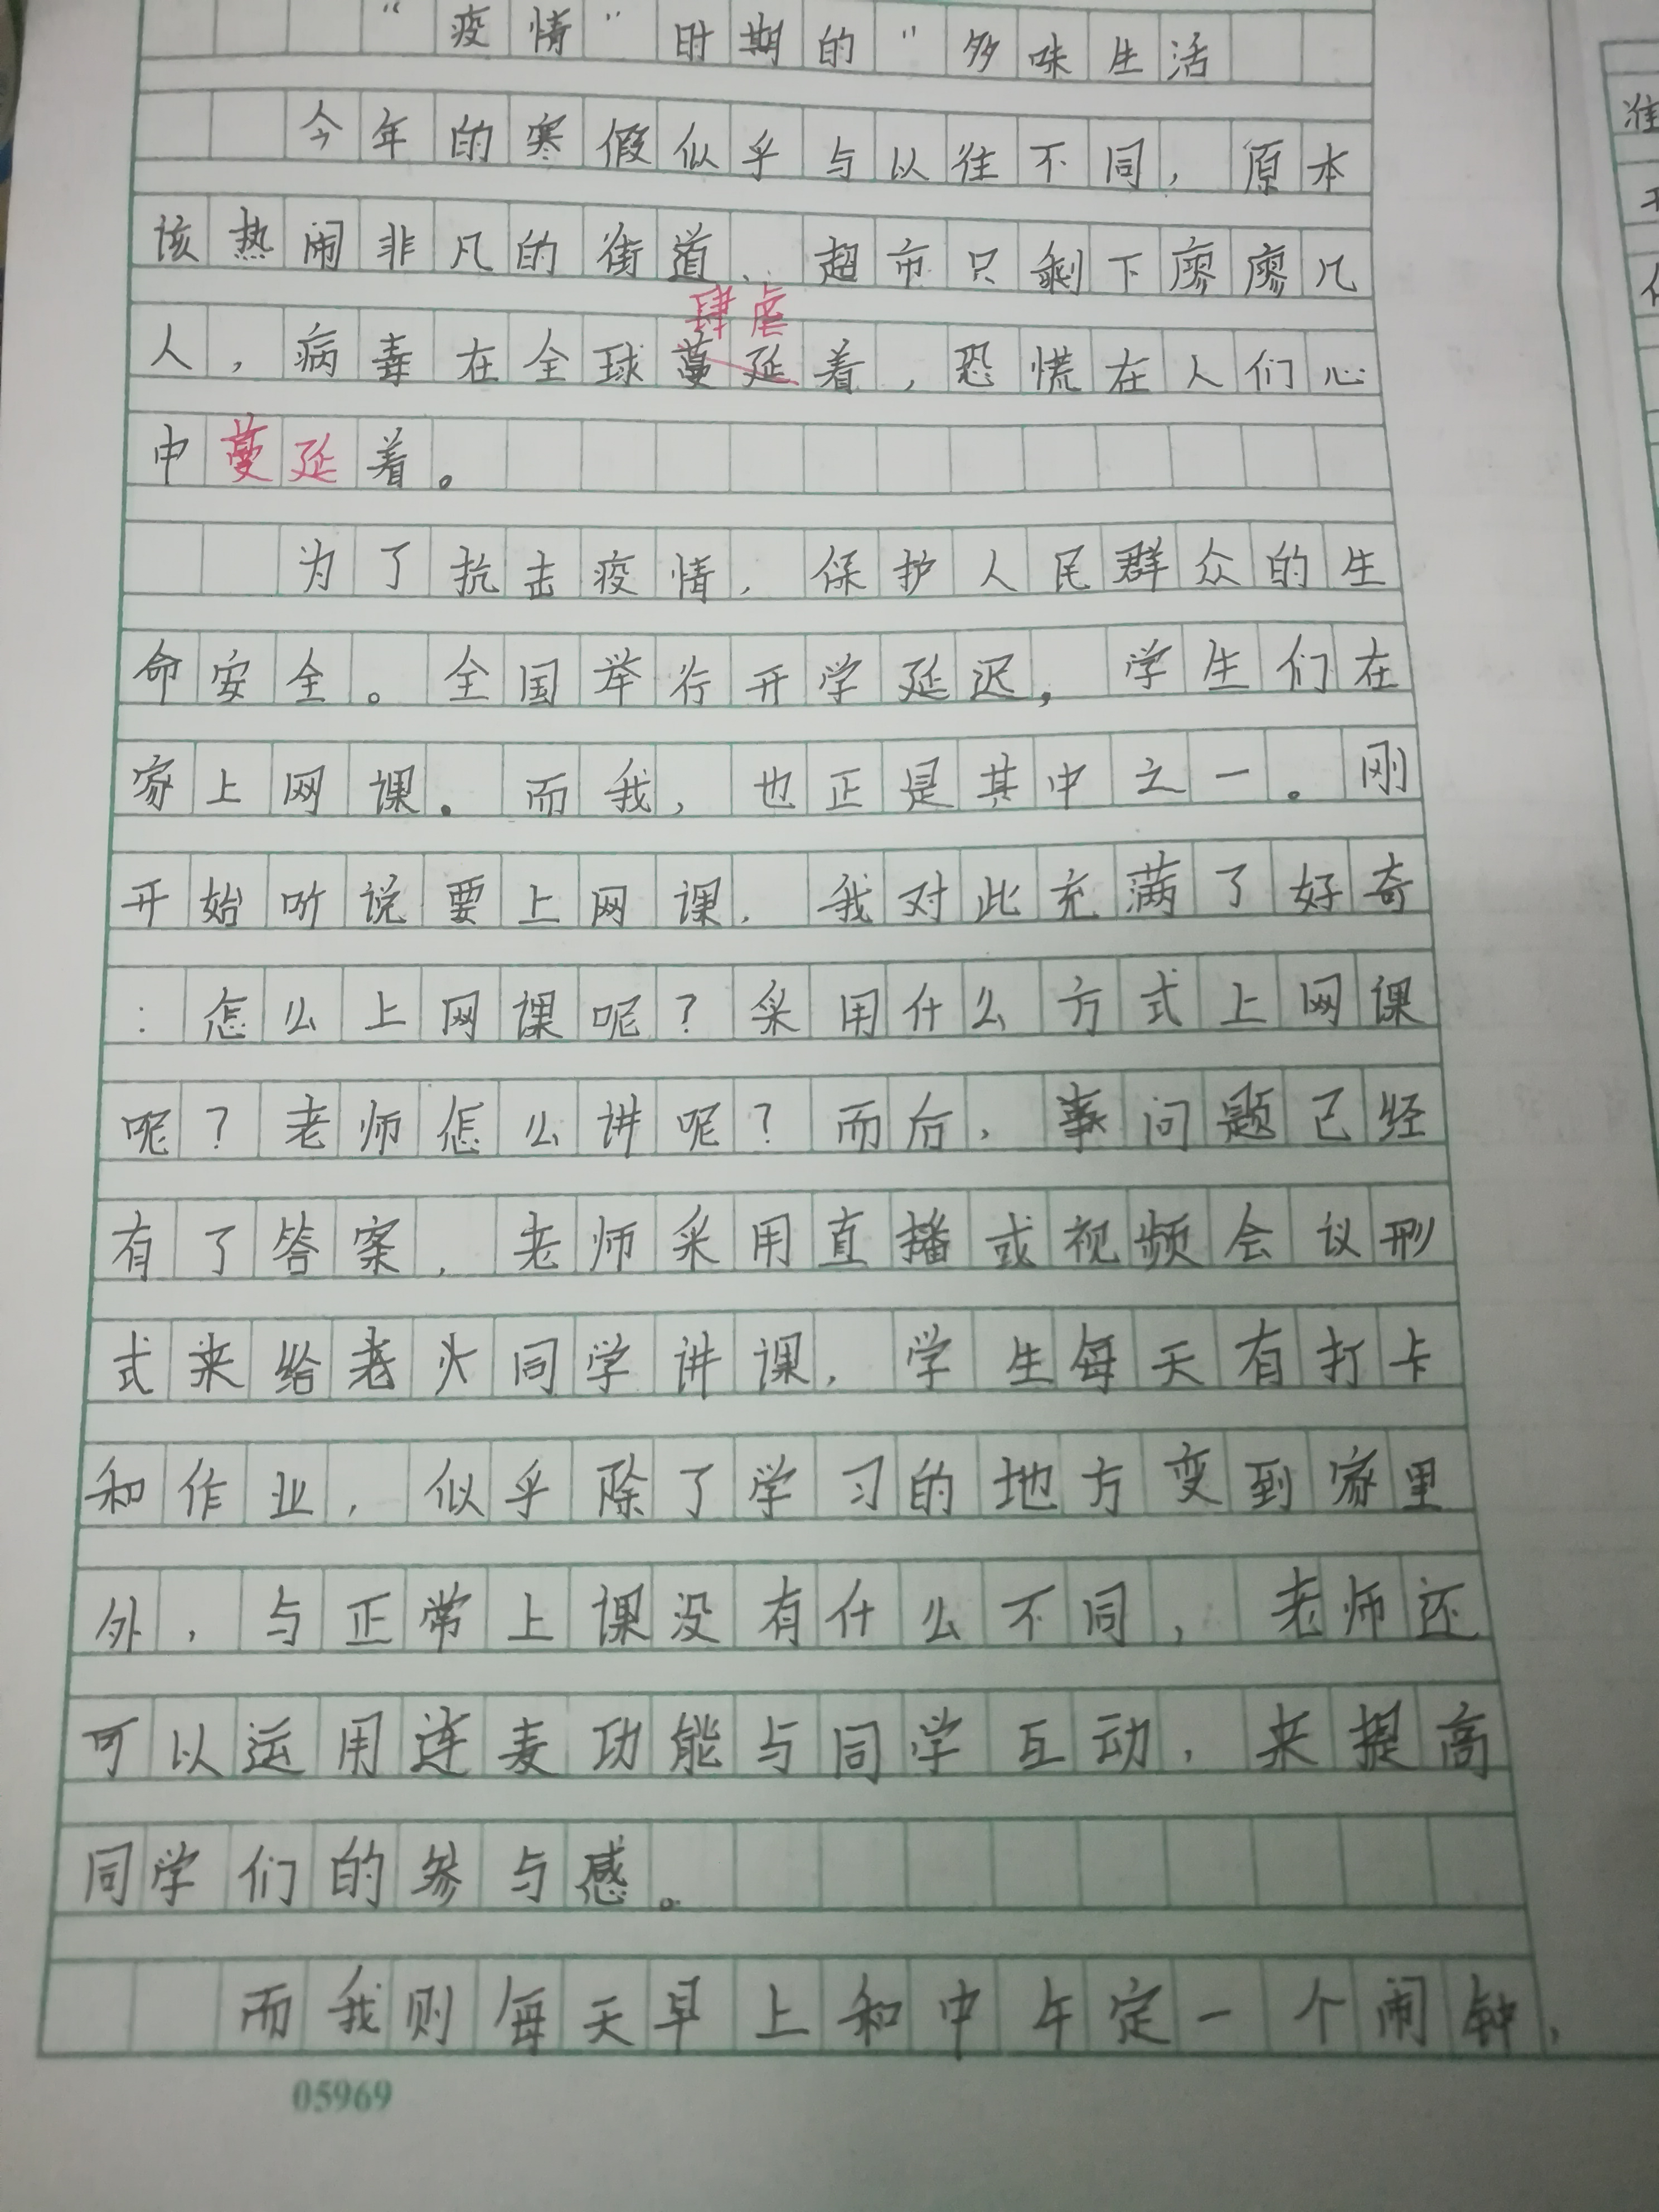 “疫情”时期的“多味生活
今年的寒假似乎与以往不同，原本
该热闹非凡的街道、超市只剩下廖廖几
肆虐
人，病毒在全球蔓延着，恐慌在人们心
中蔓延着。
为了抗击疫情，保护人民群众的生
命安全。全国举行开学延迟，学生们在
家上网课。而我，也正是其中之一。刚
开始听说要上网课，我对此充满了好奇
：怎么上网课呢？采用什么方式上网课
呢？老师怎么讲呢？而后，事问题已经
有了答案，老师采用直播或视频会议形
式来给老大同学讲课，学生每天有打卡
和作业，似乎除了学习的地方变到家里
外，与正常上课没有什么不同，老师还
可以运用连麦功能与同学互动，来提高
同学们的参与感。
而我则每天早上和中午定一个闹钟，
05969